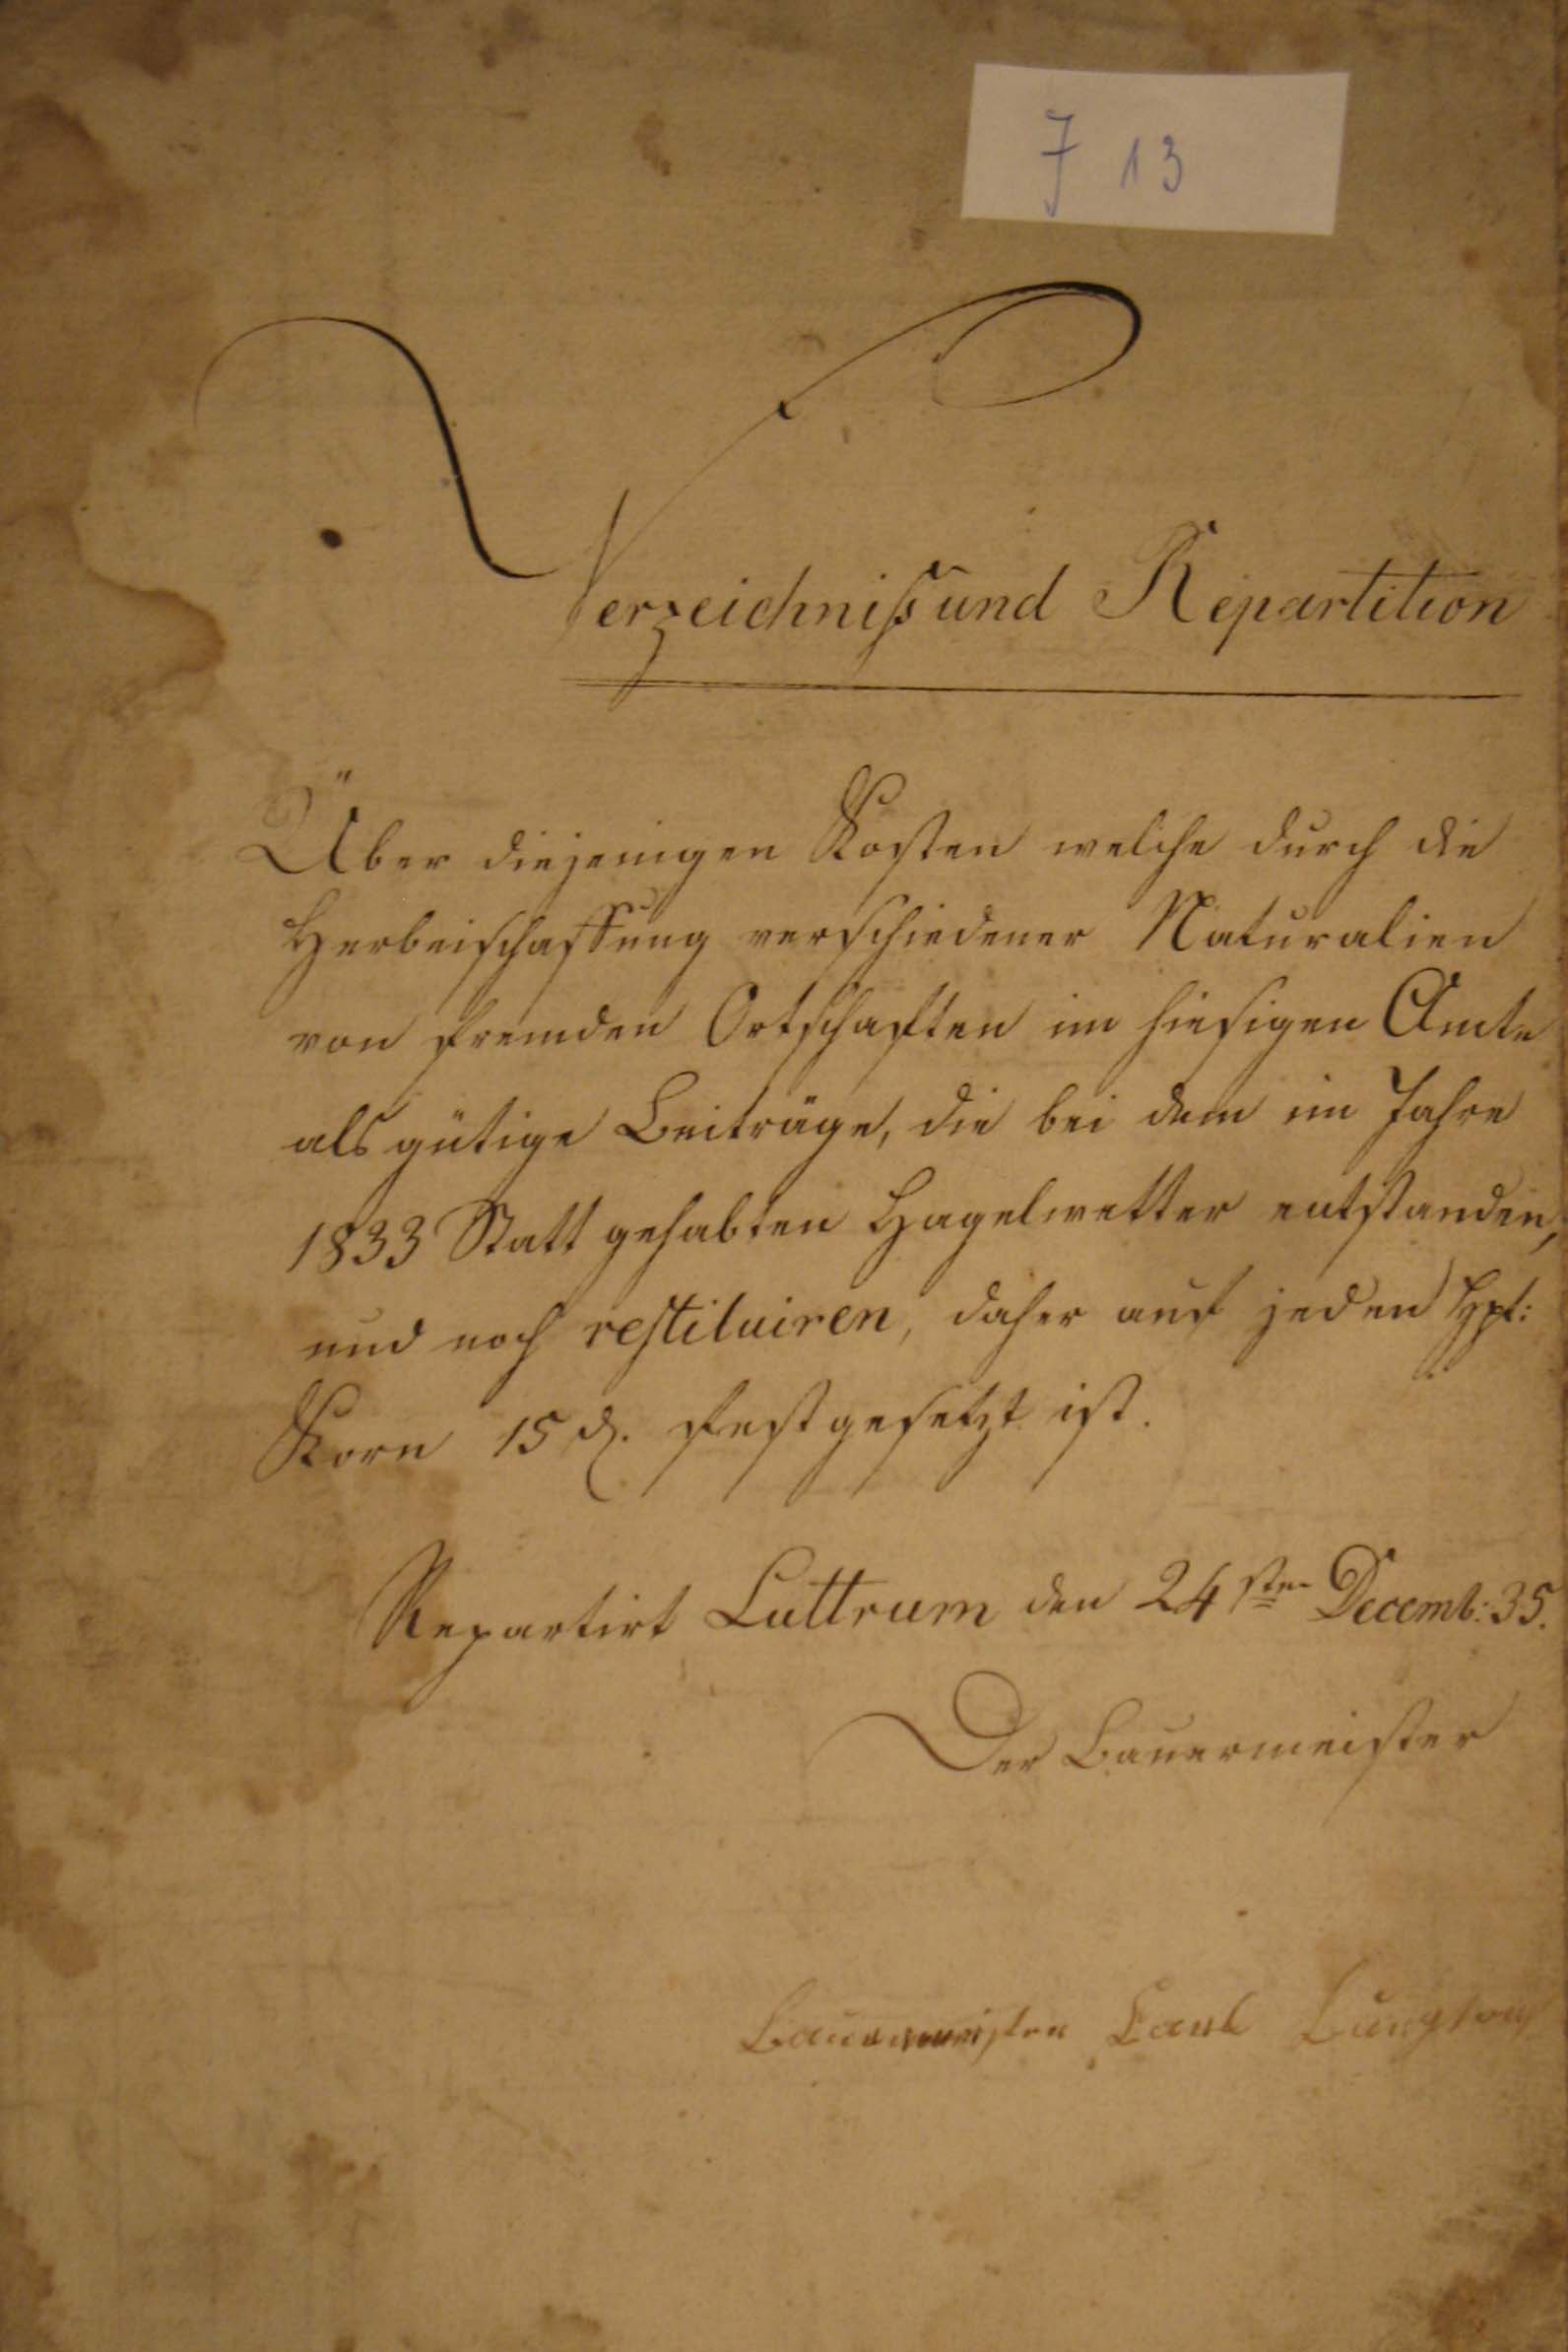 J 13
Verzeichniß und Repartition
Über diejenigen Kosten welche durch die
Herbeischaffung verschiedener Naturalien
von fremden Ortschaften im hiesigen Amte
als gütige Beiträge, die bei dem im Jahre
1833 Statt gehabten Hagelwetter entstanden,
und noch restituiren, daher auf jeden Hpt:
Korn 15 d. festgesetzt ist.
Repartirt Luttrum den 24sten Decemb: 35.
Der Bauermeister
Bauermeister Carl